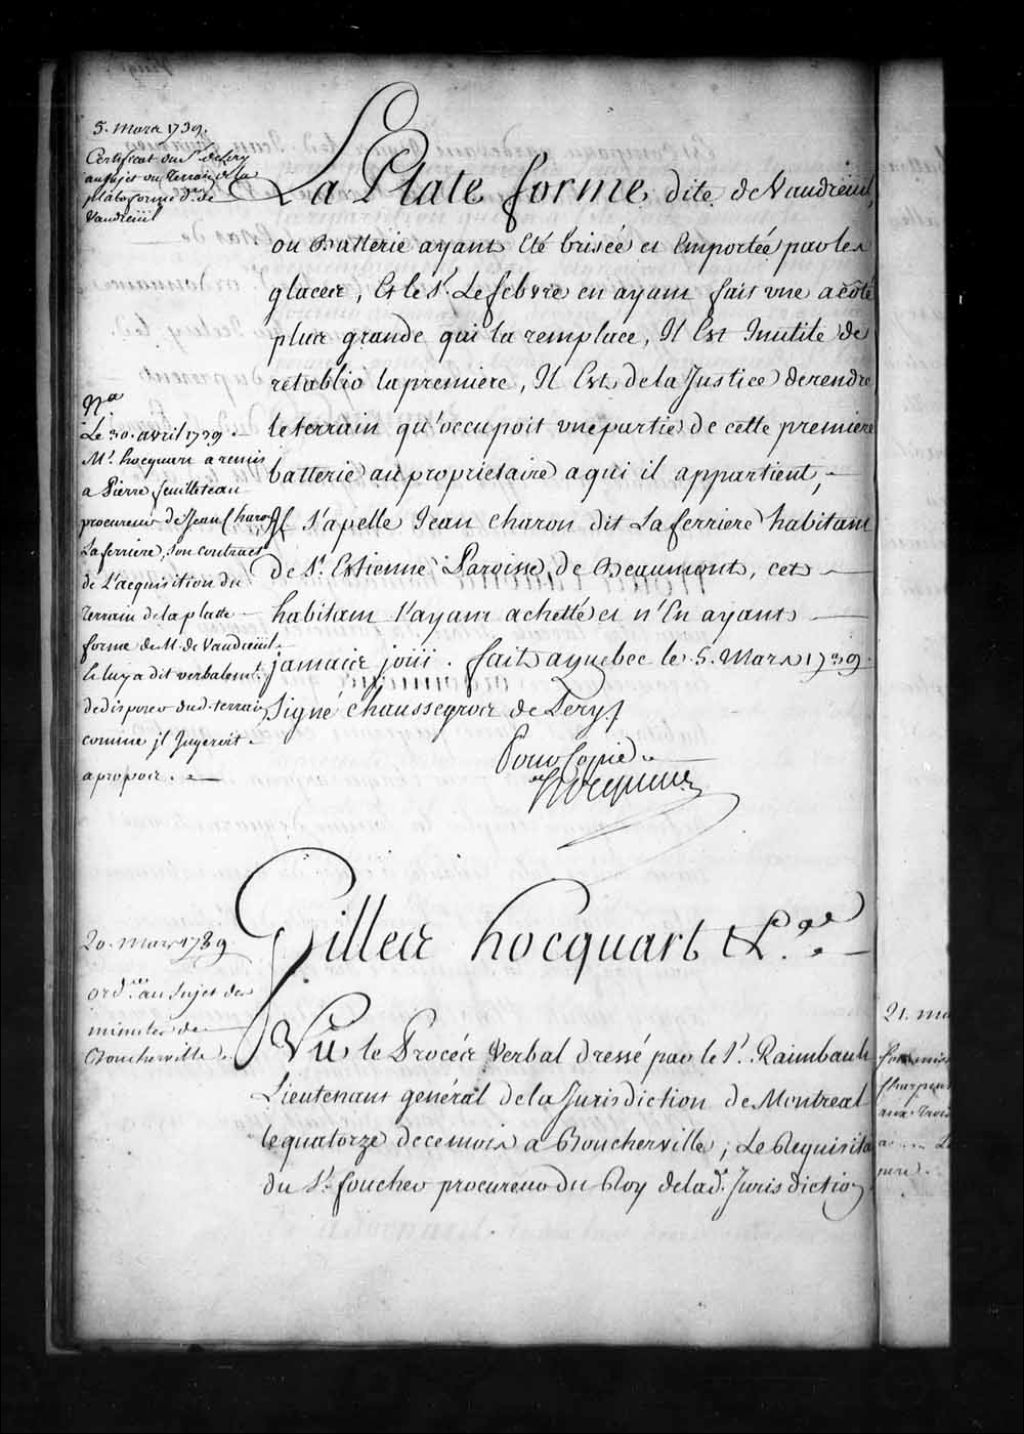 5. Mars 1739.
Certificat du Sr. de Lery
au sujet du terrain de la
plateforme de
Vaudreüil
La Plate forme dite de Vaudreüil,
ou Batterie ayant Eté brisée et Emportée par les
glaces, Et le Sr. Lefebvre en ayant fait une a coté
plus grande qui la remplace, Il Est Inutile de
retablir la premiere, Il Est de la Justice de rendre
le terrain qu'occupoit une partie de cette premiere
batterie au proprietaire a qui il appartient,
Il s'apelle Jean Charon dit Laferriere habitant
de St. Estienne Paroisse de Beaumont, cet
habitant l'ayant achetté et n'En ayant
jamais joüi. fait a quebec le 5. Mars 1739.
Signé Chaussegros de Lery
Pour Copie
Hocquart
Na
Le 30. avril 1739.
Mr. hocquart a remis
a Pierre feuilleteau
procureur de Jean Charon
Laferriere, son contract
de L'acquisition du
terrain de la platte
forme de M. de Vaudreüil.
le luy a dit verbalemt.
de disposer dud. terrain
comme jl Jugeroit
a propos.
20. Mars 1739
ordce. au sujet des
minutes de
Boucherville.
Gilles hocquart &ca.
Vû le Procés Verbal dressé par le Sr. Raimbault
Lieutenant général de la Jurisdiction de Montreal
le quatorze de ce mois a Boucherville; Le Requisitoire
du Sr. foucher procureur du Roy de la d. Jurisdiction
21.